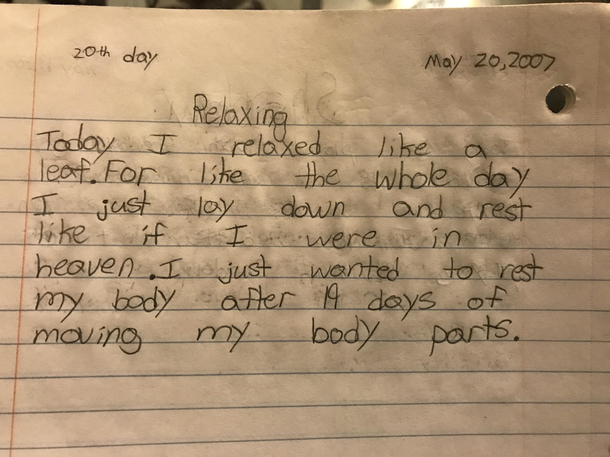 20th day
May 20, 2007
Relaxing
Today I relaxed like a
leaf. For like the whole day
I just lay down and rest
like if I were in
heaven. I just wanted to rest
my body after 19 days of
moving my body parts.